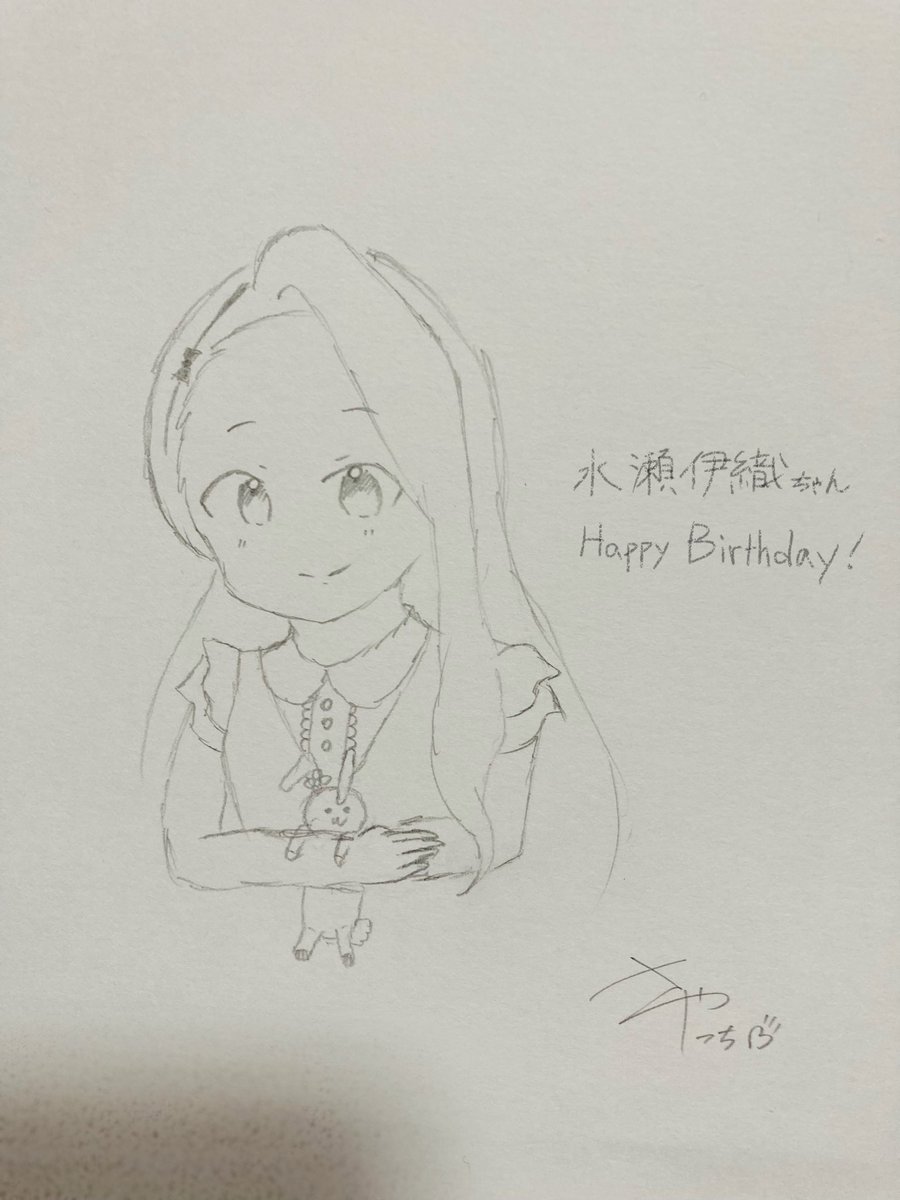 水瀬伊織ちゃん
Happy Birthday!
さやっち